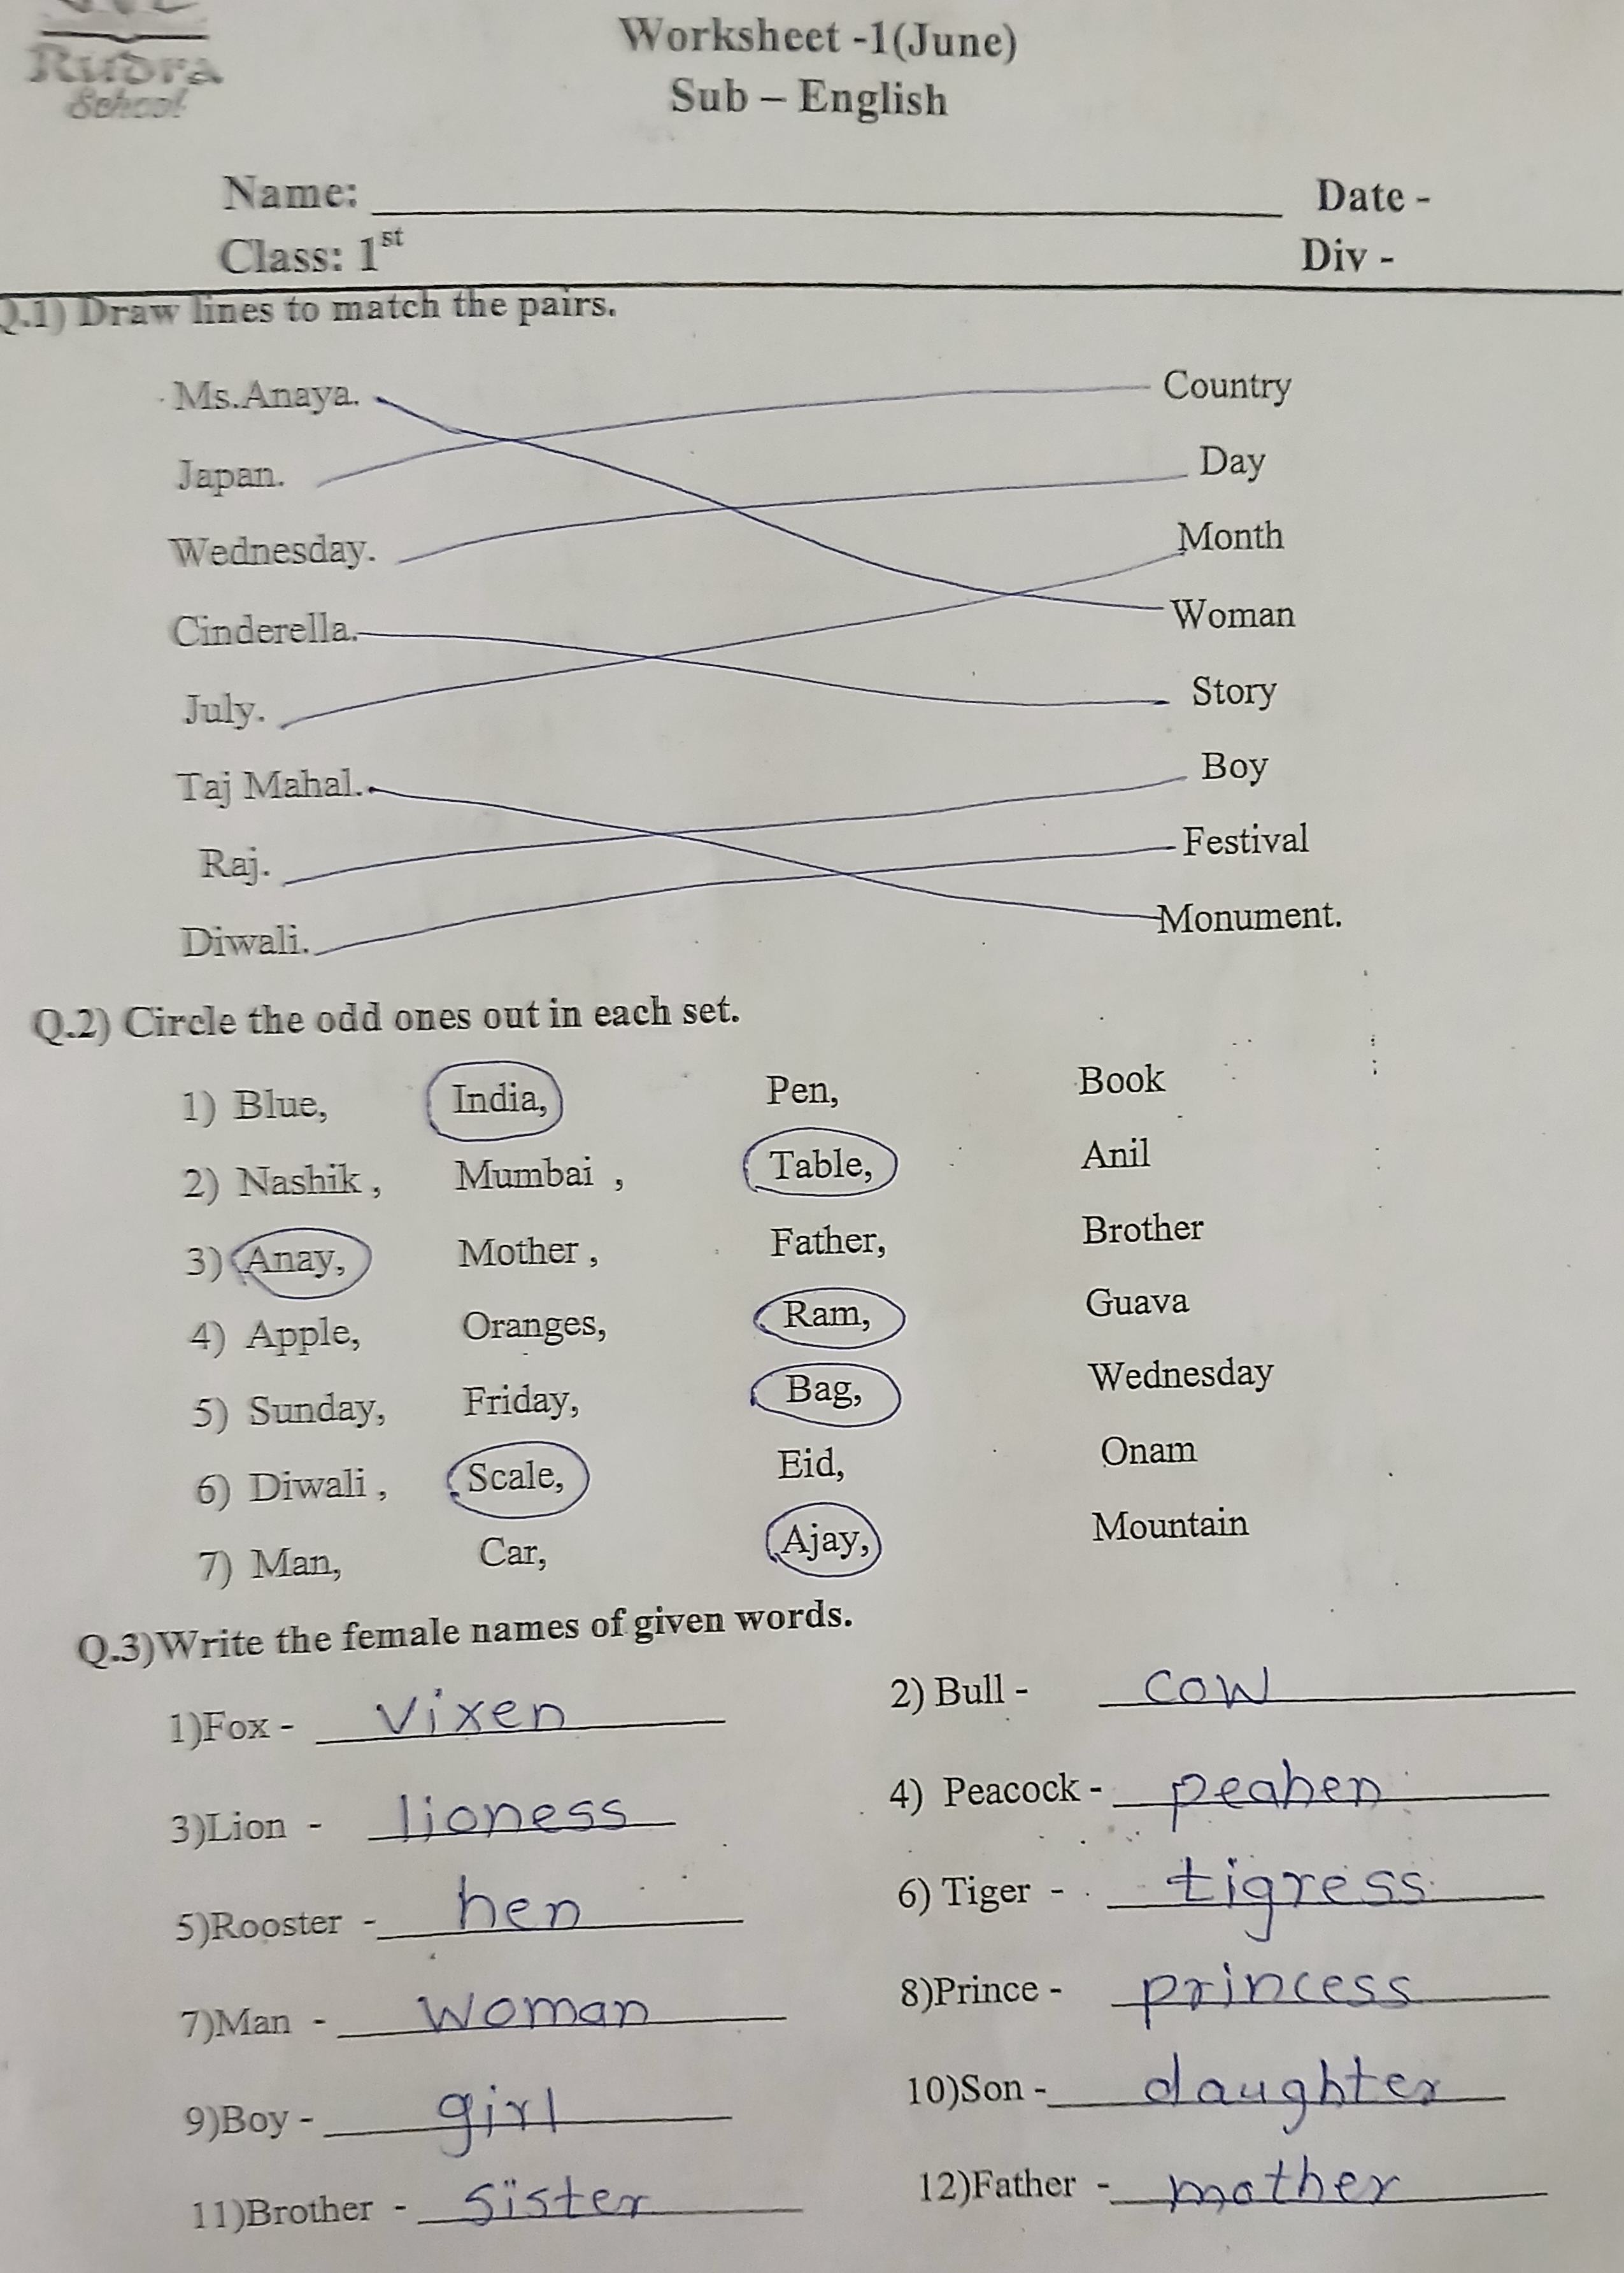 Rudra
School
Worksheet -1(June)
Sub – English
Name: Date -
Class: 1st Div -
Q.1) Draw lines to match the pairs.
Ms.Anaya. Country
Japan. Day
Wednesday. Month
Cinderella. Woman
July. Story
Taj Mahal. Boy
Raj. Festival
Diwali. Monument.
Q.2) Circle the odd ones out in each set.
1) Blue, India, Pen, Book
2) Nashik , Mumbai , Table, Anil
3) Anay, Mother , Father, Brother
4) Apple, Oranges, Ram, Guava
5) Sunday, Friday, Bag, Wednesday
6) Diwali , Scale, Eid, Onam
7) Man, Car, Ajay, Mountain
Q.3)Write the female names of given words.
1)Fox - vixen 2) Bull - cow
3)Lion - lioness 4) Peacock - peahen
5)Rooster - hen 6) Tiger - tigress
7)Man - woman 8)Prince - princess
9)Boy - girl 10)Son - daughter
11)Brother - sister 12)Father - mother